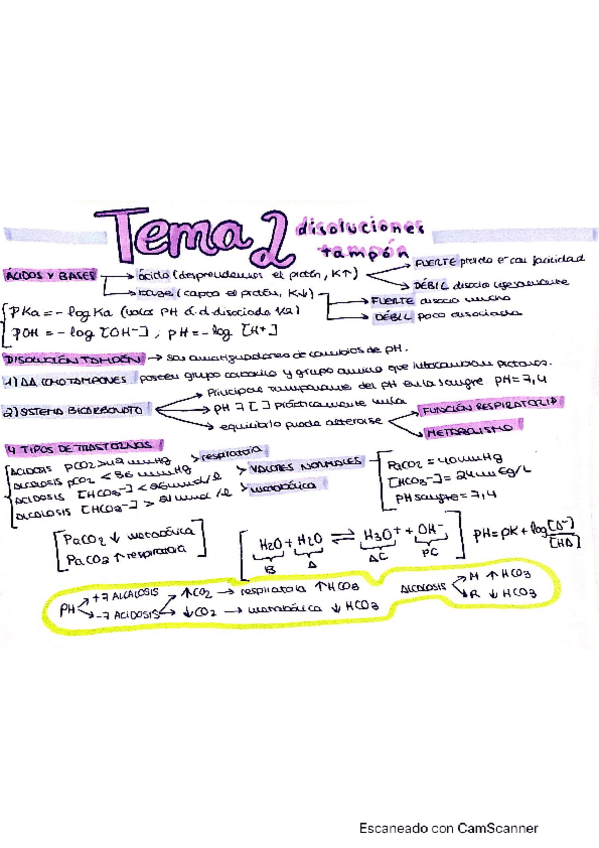 Tema 2 disoluciones tampón
ÁCIDOS Y BASES → ácido (desprendemos el protón, K↑) → FUERTE pierde e⁻ con facilidad
→ DÉBIL disocia ligeramente
→ base (capta el protón, K↓) → FUERTE disocia mucho
→ DÉBIL poco disociada
PKa = - log Ka (valor PH d.d disociado 1/2)
POH = - log [OH⁻] ; PH = - log [H⁺]
DISOLUCIÓN TAMPÓN → son amortiguadores de cambios de pH.
1) AA COMO TAMPONES poseen grupo carboxilo y grupo amino que intercambian protones.
2) SISTEMA BICARBONATO → Principal del pH en la sangre PH = 7,4
→ PH 7 [ ] prácticamente nula
→ equilibrio puede alterarse → FUNCIÓN RESPIRATORIA
→ METABOLISMO
4 TIPOS DE TRASTORNOS
ACIDOSIS PCO2 > mmHg > respiratoria
ALCALOSIS PCO2 < 36 mmHg
ACIDOSIS [HCO3⁻] < mmol/l > metabólica
ALCALOSIS [HCO3⁻] > mmol/l
> VALORES NORMALES → PaCO2 = 40 mmHg
[HCO3⁻] = 24 mEq/L
PH sangre = 7,4
PaCO2 ↓ metabólica
PaCO3 ↑ respiratoria
H2O + H2O ⇌ H3O⁺ + OH⁻
B A AC BC
PH = PK + log [A⁻]/[HA]
PH → +7 ALCALOSIS → ↑CO2 → respiratoria ↑HCO3
→ -7 ACIDOSIS → ↓CO2 → metabólica ↓HCO3
ALCALOSIS → M ↑ HCO3
→ R ↓ HCO3
Escaneado con CamScanner